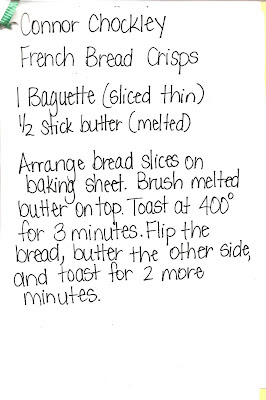 Connor Chockley
French Bread Crisps
1 Baguette (sliced thin)
1/2 stick butter (melted)
Arrange bread slices on
baking sheet. Brush melted
butter on top. Toast at 400°
for 3 minutes. Flip the
bread, butter the other side,
and toast for 2 more
minutes.